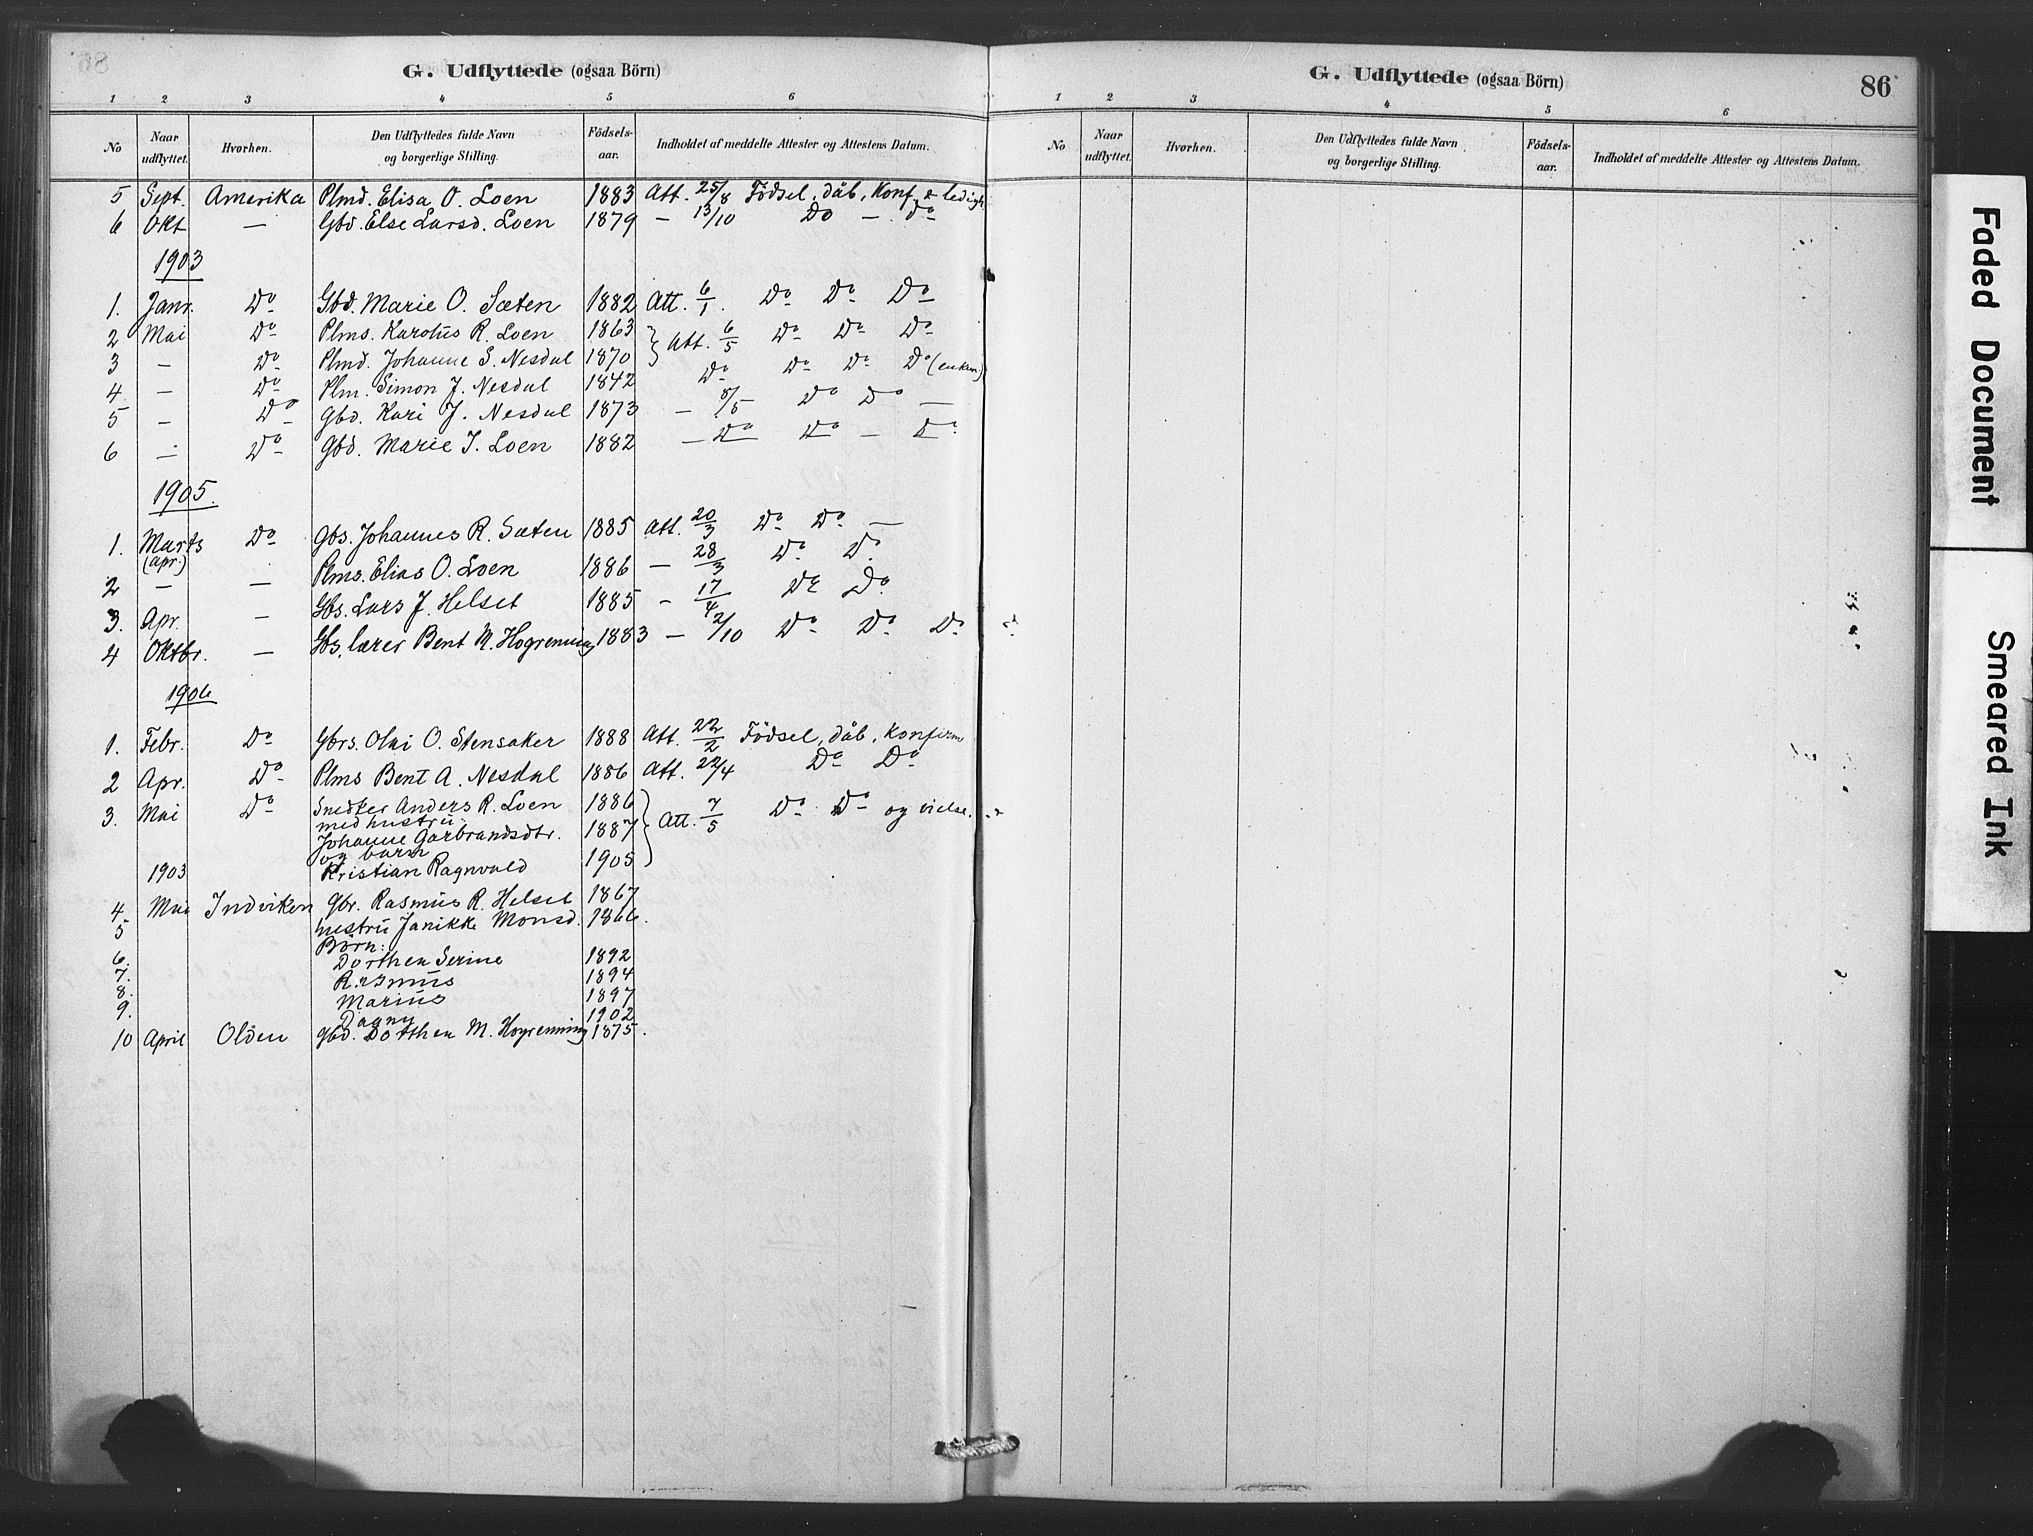 G. Udflyttede (ogsaa Börn)
1 2 3 4 5 6
No Naar udflyttet. Hvorhen. Den Udflyttedes fulde Navn og borgerlige Stilling. Födsels-aar. Indholdet af meddelte Attester og Attestens Datum.
5 Sept. Amerika Plmd. Elisa O. Loen 1883 Att. 25/8 Födsel, dåb, Konf. & ledigh
6 Okt — Gbd. Else Larsd. Loen 1879 — 13/10 Do — Do
1903
1. Janr. Do Gbd. Marie O. Sæten 1882 Att. 6/1. Do Do Do
2 Mai Do Plms. Karolus R. Loen 1863 Att. 6/5 Do Do Do
3 — Do Plmd. Johanne S. Nesdal 1870
4 — Do Plm. Simon J. Nesdal 1842 Do Do Do Do (enkem)
5 — Do Gbd. Kari J. Nesdal 1873 — 8/5 Do Do —
6 — Do Gbd. Marie J. Loen 1882 — Do Do — Do
1905.
1. Marts (apr.) Do Gbs. Johannes R. Sæten 1885 Att. 20/3 Do Do —
2 — — Plms. Elias O. Loen 1886 — 28/3 Do Do
3. Apr. — Gbs. Lars J. Helset 1885 — 17/4 Do Do
4 Oktbr. — Gbs. lærer Bent M. Hogrenning 1883 — 2/10 Do Do Do
1906
1. Febr. Do Gbrs. Olai O. Stensaker 1888 Att. 22/2 Födsel, dåb, Konfirm
2 Apr. Do Plms Bent A. Nesdal 1886 Att. 22/4 Do Do
3. Mai Do Snedker Anders R. Loen 1886 Att. 7/5 Do Do og vielse.
med hustru
Johanne Garbrandsdtr. 1887
og barn
Kristian Ragnvald 1905
1903
4. Mai Indviken Gbr. Rasmus R. Helset 1867
5 hustru Janikke Monsd. 1866.
Börn:
6. Dorthea Serine 1892
7. Rasmus 1894
8. Marius 1897
9. Dagny 1902
10 April Olden Gbd. Dorthea M. Hogrenning 1875.
G. Udflyttede (ogsaa Börn)
86
1 2 3 4 5 6
No Naar udflyttet. Hvorhen. Den Udflyttedes fulde Navn og borgerlige Stilling. Födsels-aar. Indholdet af meddelte Attester og Attestens Datum.
Faded Document
Smeared Ink